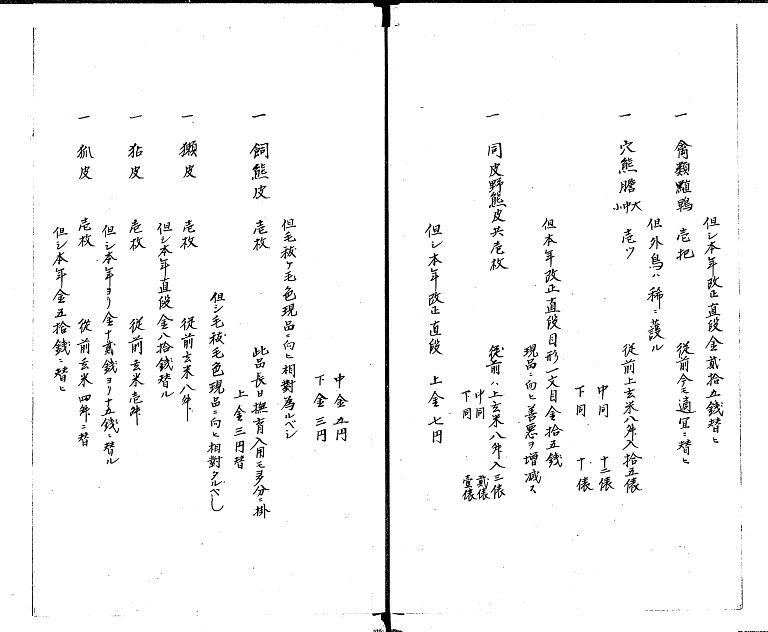 一 禽類 鴨 壱把 従前今モ適宜ニ替ヒ
但シ本年改正直段金貳拾五銭替ヒ
但外鳥ハ稀ニ護ル
一 穴熊膽 大中小 壱ツ 従前上玄米八舛入拾五俵
中同 十二俵
下同 十俵
但本年改正直段目形一文目金拾五銭
現品ニ向ヒ善悪ヲ増减ス
一 同皮野熊皮共壱枚 従前ハ上玄米八舛入三俵
中同 貳俵
下同 壹俵
但シ本年改正直段 上金七円
中金五円
下金三円
但毛祓ケ毛色現品ニ向ヒ相對為ルベシ
一 飼熊皮 壱枚 此品長日撫育入用モ多分ニ掛
上金三円替
但シ毛祓毛色現品ニ向ヒ相對タルベし
一 獺皮 壱枚 従前玄米八舛
但シ本年直段金八拾銭替ル
一 狢皮 壱枚 従前玄米壱舛
但シ本年ヨリ金十貳銭ヨリ十五銭ニ替ル
一 狐皮 壱枚 従前玄米四舛ニ替
但シ本年金五拾銭ニ替ヒ